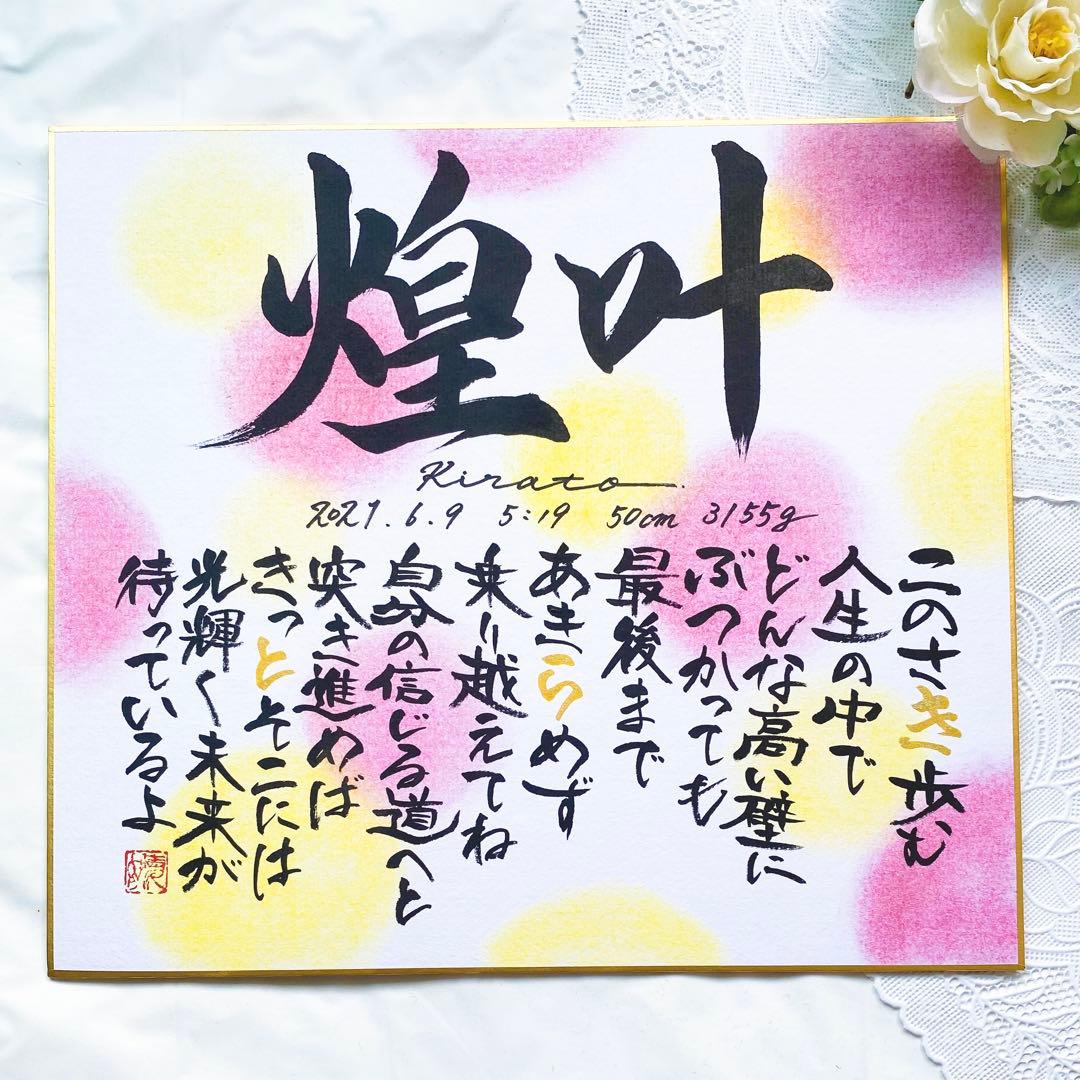 煌叶
Kirato
2021.6.9 5:19 50cm 3155g
このさき歩む
人生の中で
どんな高い壁に
ぶつかっても
最後まで
あきらめず
乗り越えてね
自分の信じる道へと
突き進めば
きっとそこには
光輝く未来が
待っているよ